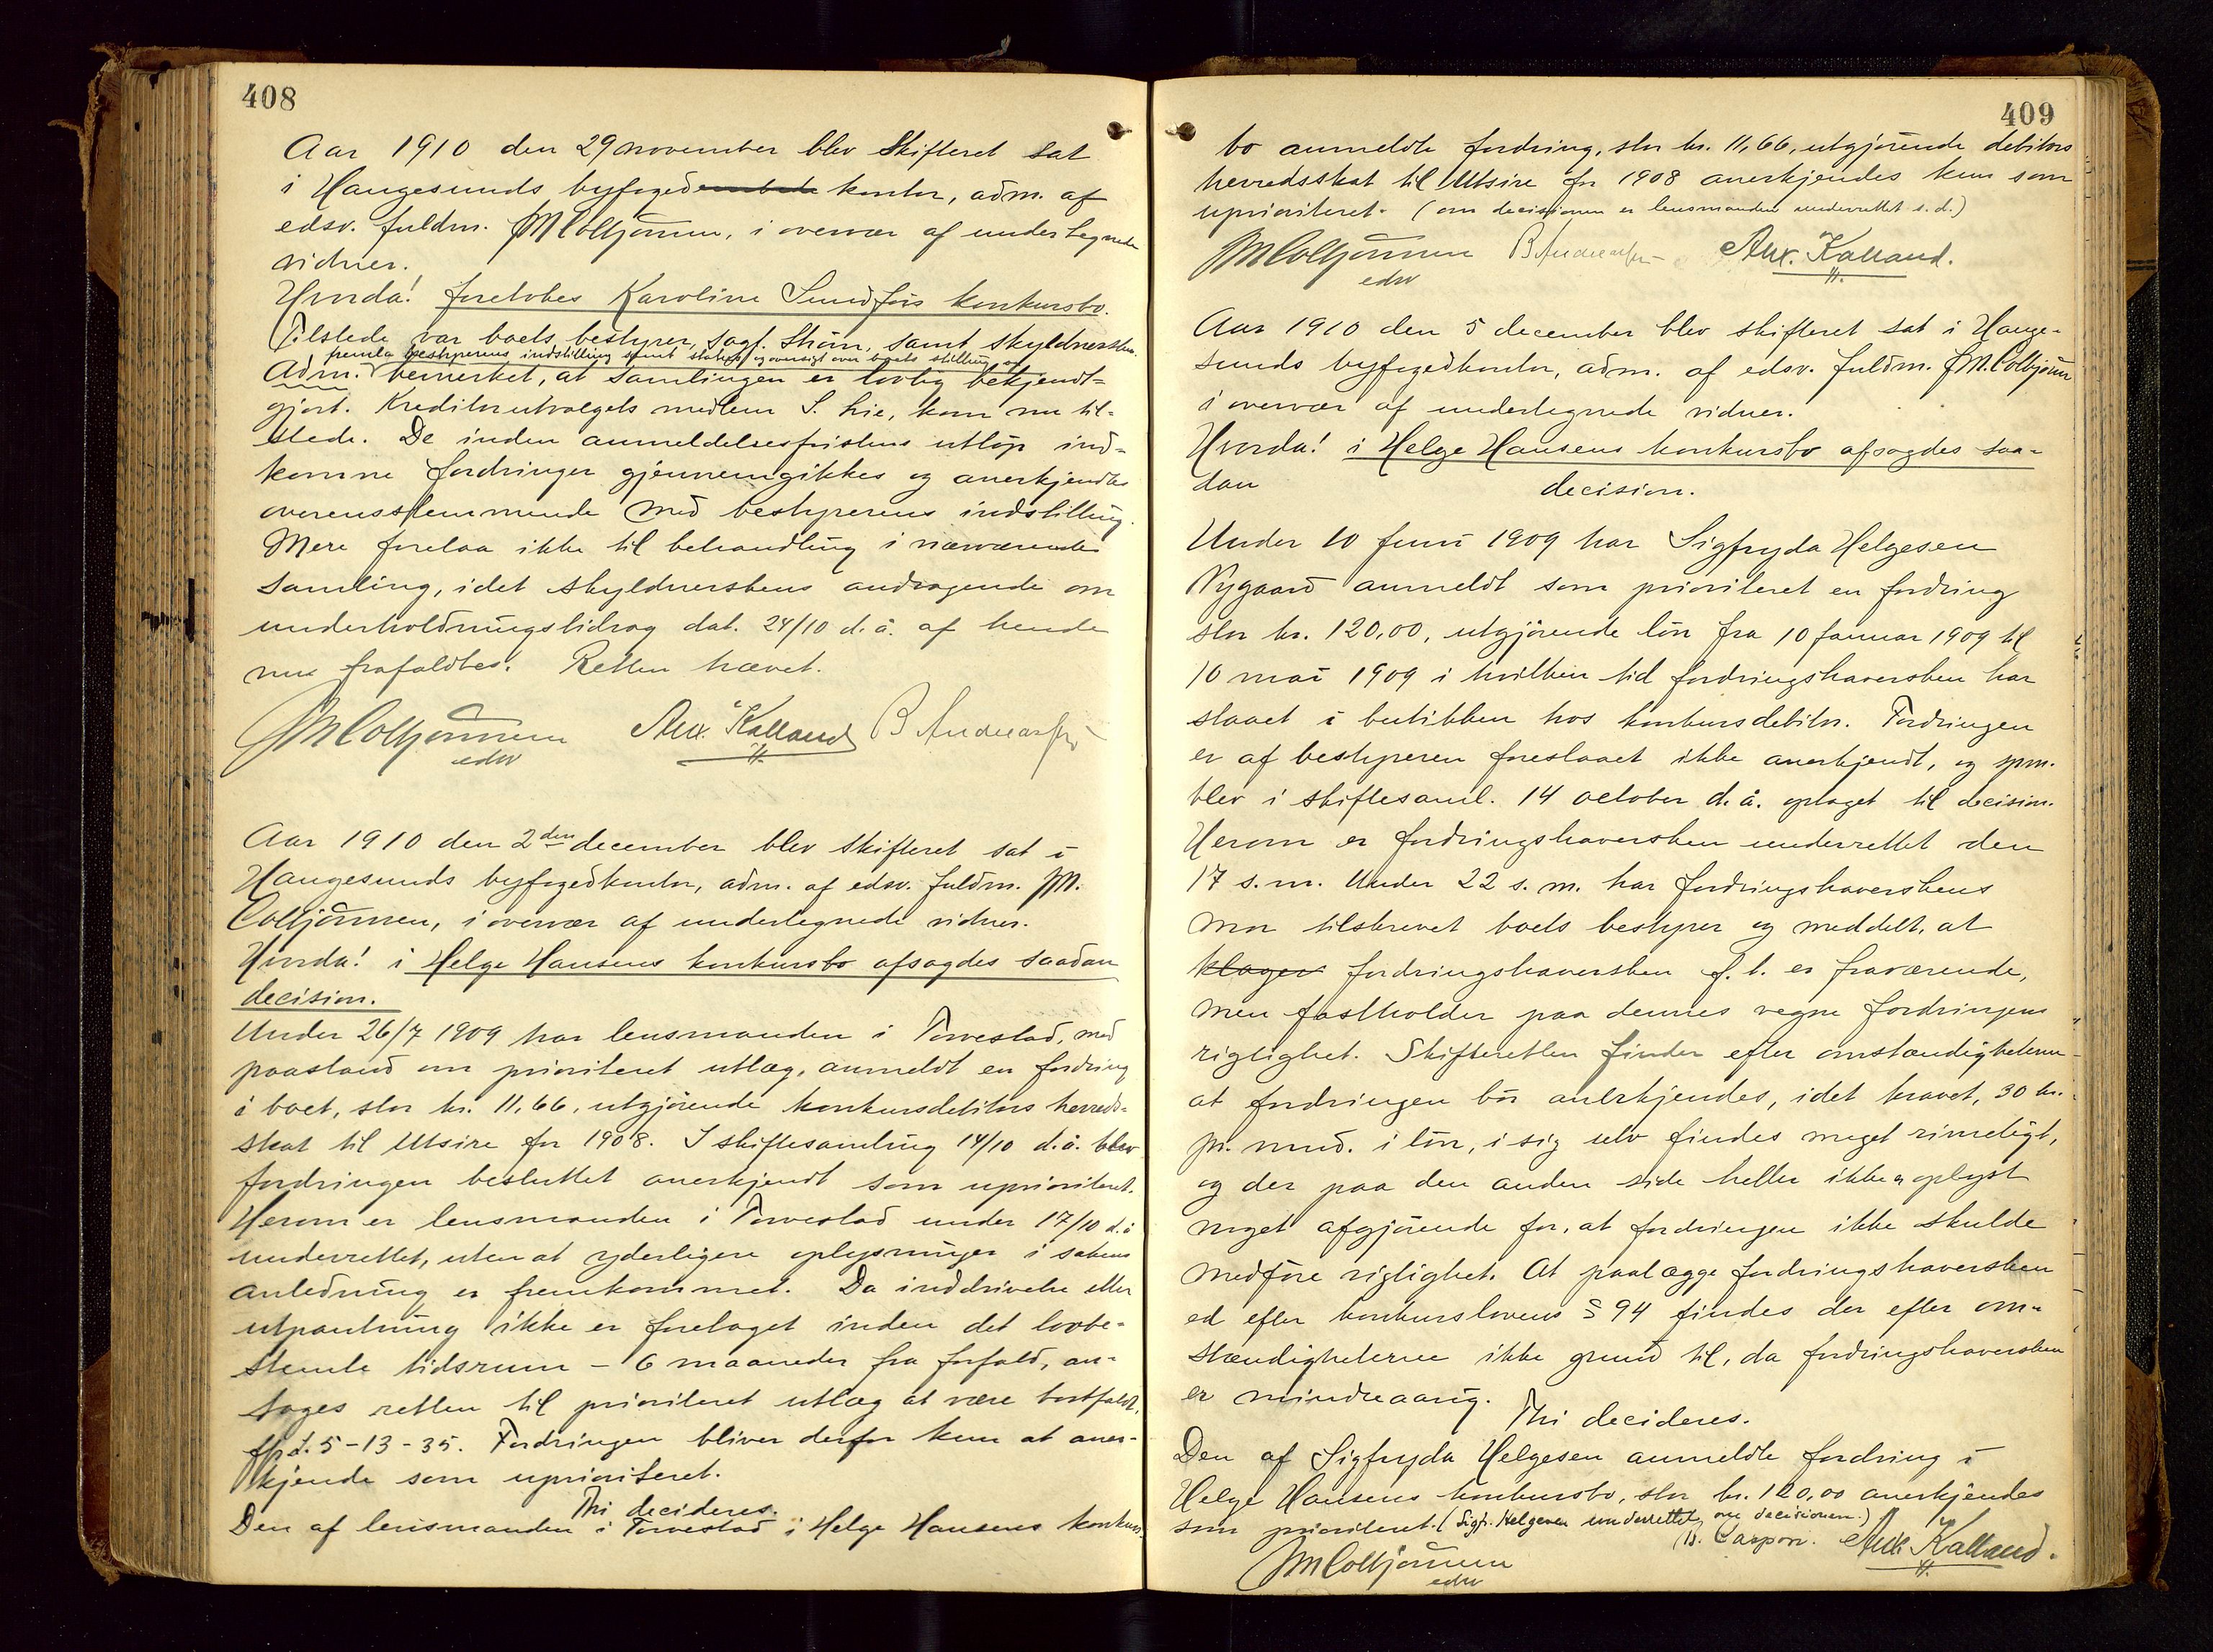 408
Aar 1910 den 29 november blev skifteret sat
i Haugesunds byfogedembede kontor, adm. af
edsv. fuldm. JM Colbjørnsen, i overvær af undertegnede
vidner.
Hvorda! foretokes Karoline Sundførs konkursbo.
Tilstede var boets bestyrer, sagf. Strøm, samt skyldnersken.
fremla bestyrerens indstilling samt status og oversigt over boets stilling og
Adm. bemerket, at samlingen er lovlig bekjendt-
gjort. Kreditorutvalgets medlem S. Lie, kom nu til-
stede. De inden anmeldelsesfristens utløp ind-
komne fordringer gjennemgikkes og anerkjendtes
overensstemmende med bestyrerens indstilling.
Mere forelaa ikke til behandling i nærværende
samling, idet skyldnerskens andragende om
underholdningsbidrag dat. 24/10 d. å. af hende
nu frafaldtes. Retten hævet.
JM Colbjørnsen Alex. Kalland B Andersen
edsv
Aar 1910 den 2den december blev skifteret sat i
Haugesunds byfogedkontor, adm. af edsv. fuldm. JM.
Colbjørnsen, i overvær af undertegnede vidner.
Hvorda! i Helge Hansens konkursbo afsagdes saadan
decision.
Under 26/7 1909 har lensmanden i Torvestad, med
paastand om prioriteret utlæg, anmeldt en fordring
i boet, stor kr. 11,66, utgjørende konkursdebitors herreds-
skat til Utsire for 1908. I skiftesamling 14/10 d. å. blev
fordringen besluttet anerkjendt som uprioritert.
Herom er lensmanden i Torvestad under 17/10 d. å
underrettet, uten at yderligere oplysninger i sakens
anledning er fremkommet. Da inddrivelse eller
utpantning ikke er foretaget inden det lovbe-
stemte tidsrum - 6 maaneder fra forfald, an-
tages retten til prioriteret utlæg at være bortfaldt,
jfr. l. 5-13-35. Fordringen bliver derfor kun at aner-
kjende som uprioriteret.
Thi decideres.
Den af lensmanden i Torvestad i Helge Hansens konkurs-
409
bo anmeldte fordring, stor kr. 11,66, utgjørende debitors
herredsskat til Utsire for 1908 anerkjendes kun som
uprioriteret. (om decisionen er lensmanden underrettet s. d.)
JM Colbjørnsen B Andersen Alex. Kalland.
edsv
Aar 1910 den 5 december blev skifteret sat i Hauge-
sunds byfogedkontor, adm. af edsv. fuldm. JM. Colbjørnsen
i overvær af undertegnede vidner.
Hvorda! i Helge Hansens konkursbo afsagdes saa-
dan decision.
Under 10 juni 1909 har Sigfryda Helgesen
Nygaard anmeldt som prioriteret en fordring
stor kr. 120,00, utgjørende løn fra 10 januar 1909 til
10 mai 1909 i hvilken tid fordringshaversken har
staaet i butikken hos konkursdebitor. Fordringen
er af bestyreren foreslaaet ikke anerkjendt, og spm.
blev i skiftesaml. 14 october d. å. optaget til decision.
Herom er fordringshaversken underrettet den
17 s. m. Under 22 s. m. har fordringshaverskens
mor tilskrevet boets bestyrer og meddelt, at
klager fordringshaversken f. t. er fraværende,
men fastholder paa dennes vegne fordringens
rigtighet. Skifteretten finder efter omstændigheterne
at fordringen bør anerkjendes, idet kravet, 30 kr.
pr. mnd. i løn, i sig selv findes meget rimeligt,
og der paa den anden side heller ikke er oplyst
noget afgjørende for, at fordringen ikke skulde
medføre rigtighet. At paalægge fordringshaversken
ed efter konkurslovens § 94 findes der efter om-
stændigheterne ikke grund til, da fordringshaversken
er mindreaarig.
Thi decideres.
Den af Sigfryda Helgesen anmeldte fordring i
Helge Hansens konkursbo, stor kr. 120,00 anerkjendes
som prioriteret. (Sigfr. Helgesen underrettet om decisionen.)
JM Colbjørnsen Caspom. Alex Kalland.
edsv